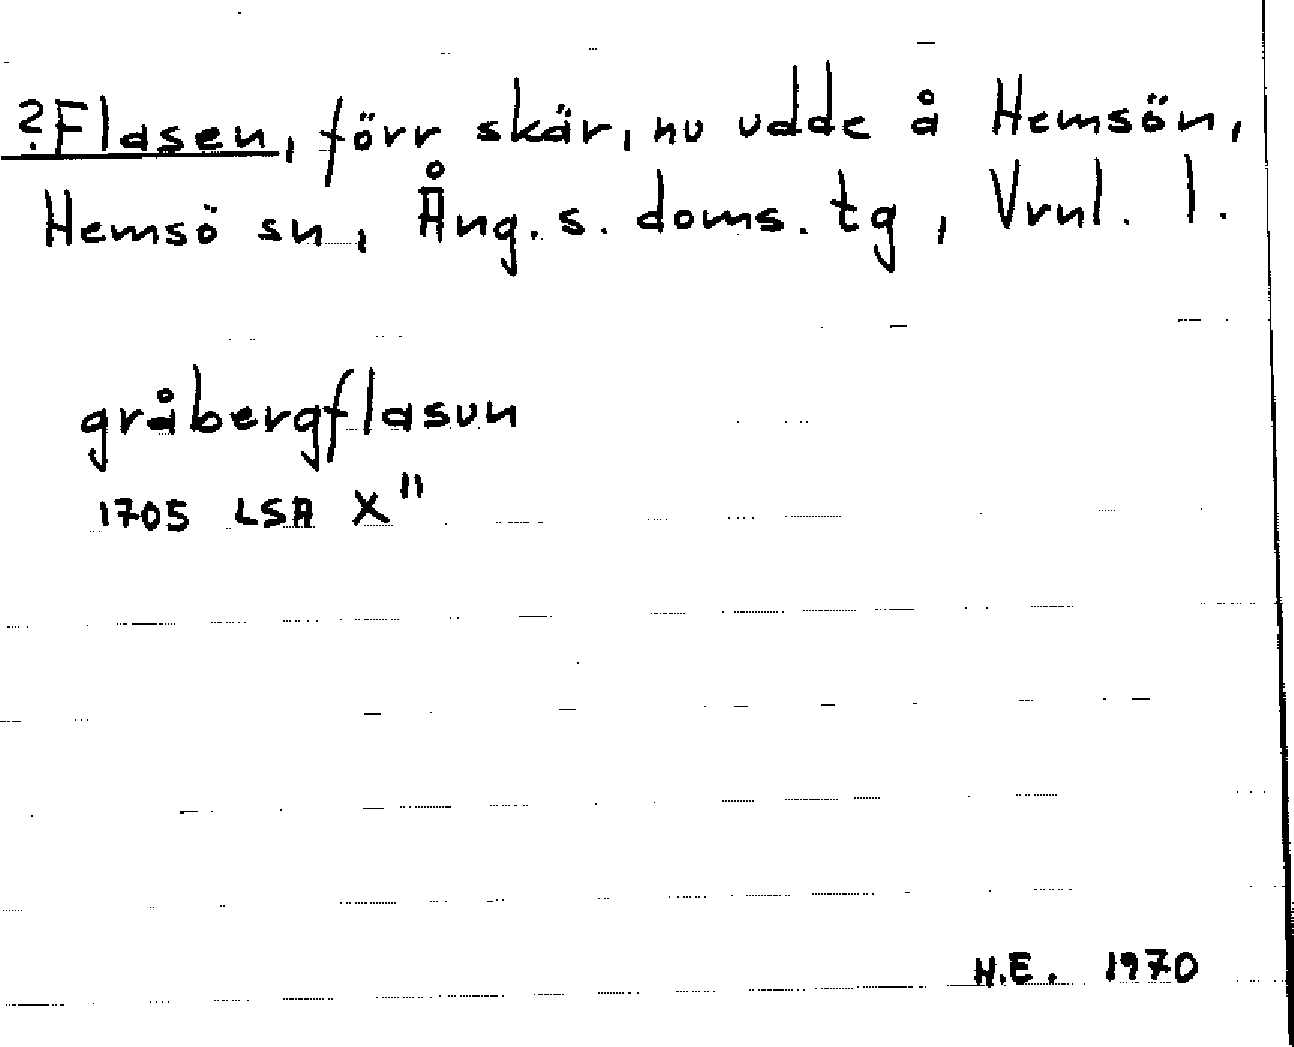 ?Flasen, förr skär, nu udde å Hemsön,
Hemsö sn, Ång. s. doms. tg, Vrnl. l.
gråbergflasun
1705 LSA X"
H.E. 1970